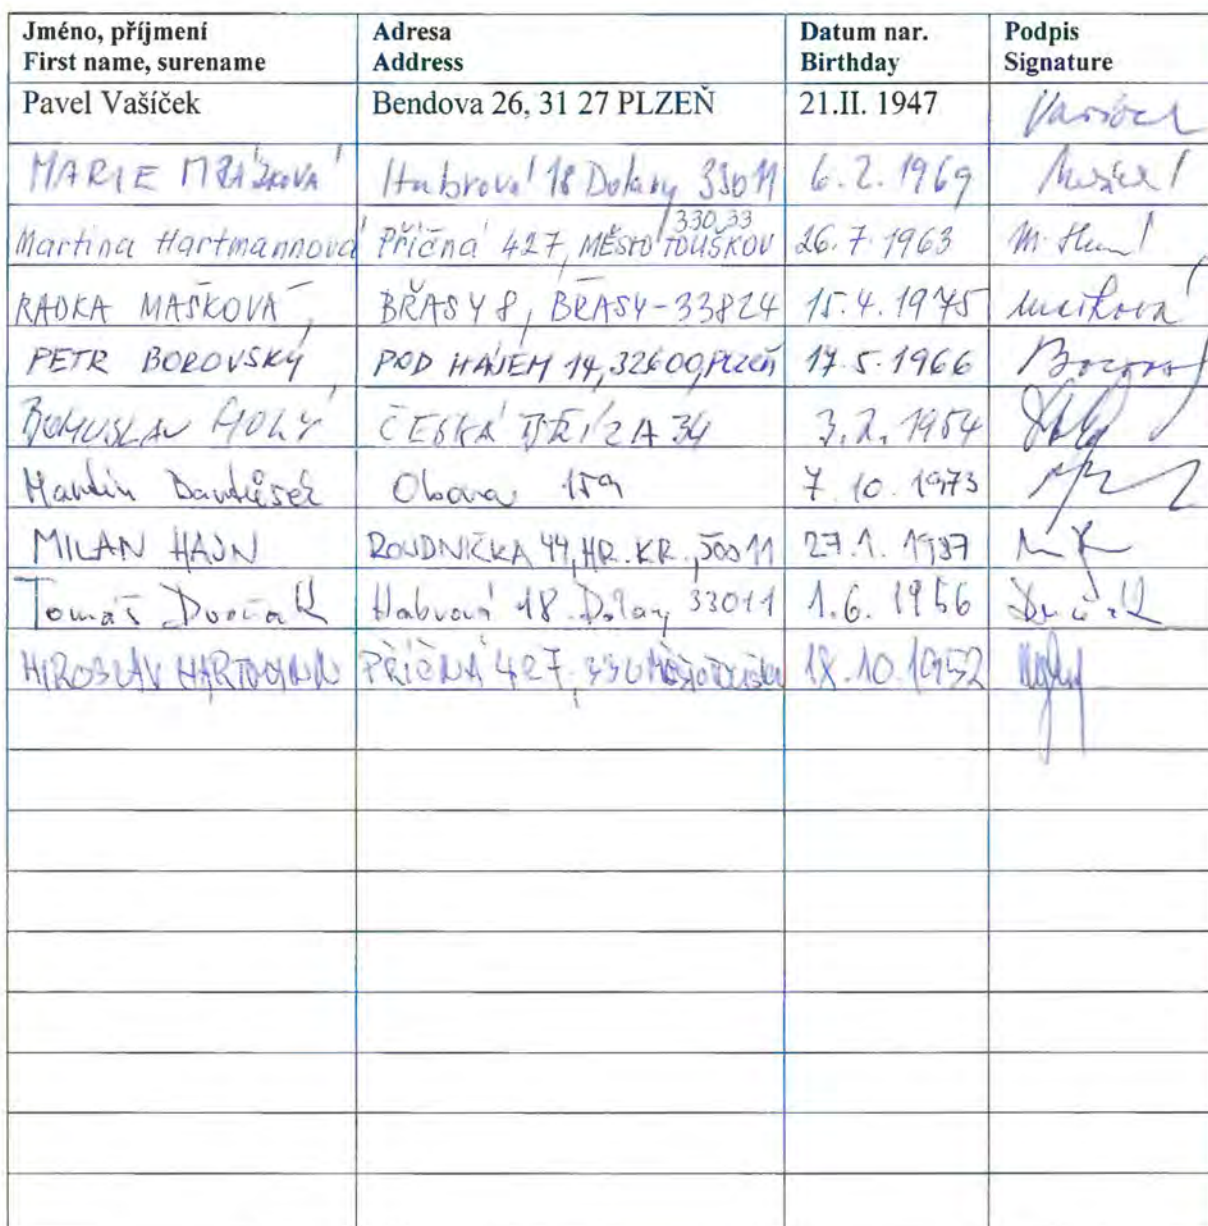 Jméno, příjmení Adresa Datum nar. Podpis
First name, surename Address Birthday Signature
Pavel Vašíček Bendova 26, 31 27 PLZEŇ 21.II. 1947
MARIE Habrová 18 Dolany 33011 6. 2. 1969
330 33
Martina Hartmannová Příčná 427, MĚSTO TOUŠKOV 26. 7. 1963
RADKA MAŠKOVÁ BŘASY 8, BŘASY - 33824 15. 4. 1975 Mašková
PETR BOROVSKÝ POD HÁJEM 14, 32600, Plzeň 17. 5. 1966
BOHUSLAV HOLÝ ČESKÁ BŘÍZA 34 3. 2. 1954
Martin 7. 10. 1973
MILAN HAJN ROUDNIČKA 44, HR. KR., 50011 27. 1. 1987
Tomáš Dvořák Habrová 18 Dolany 33011 1. 6. 1966 Dvořák
MIROSLAV HARTMANN PŘÍČNÁ 427, 330 18. 10. 1952